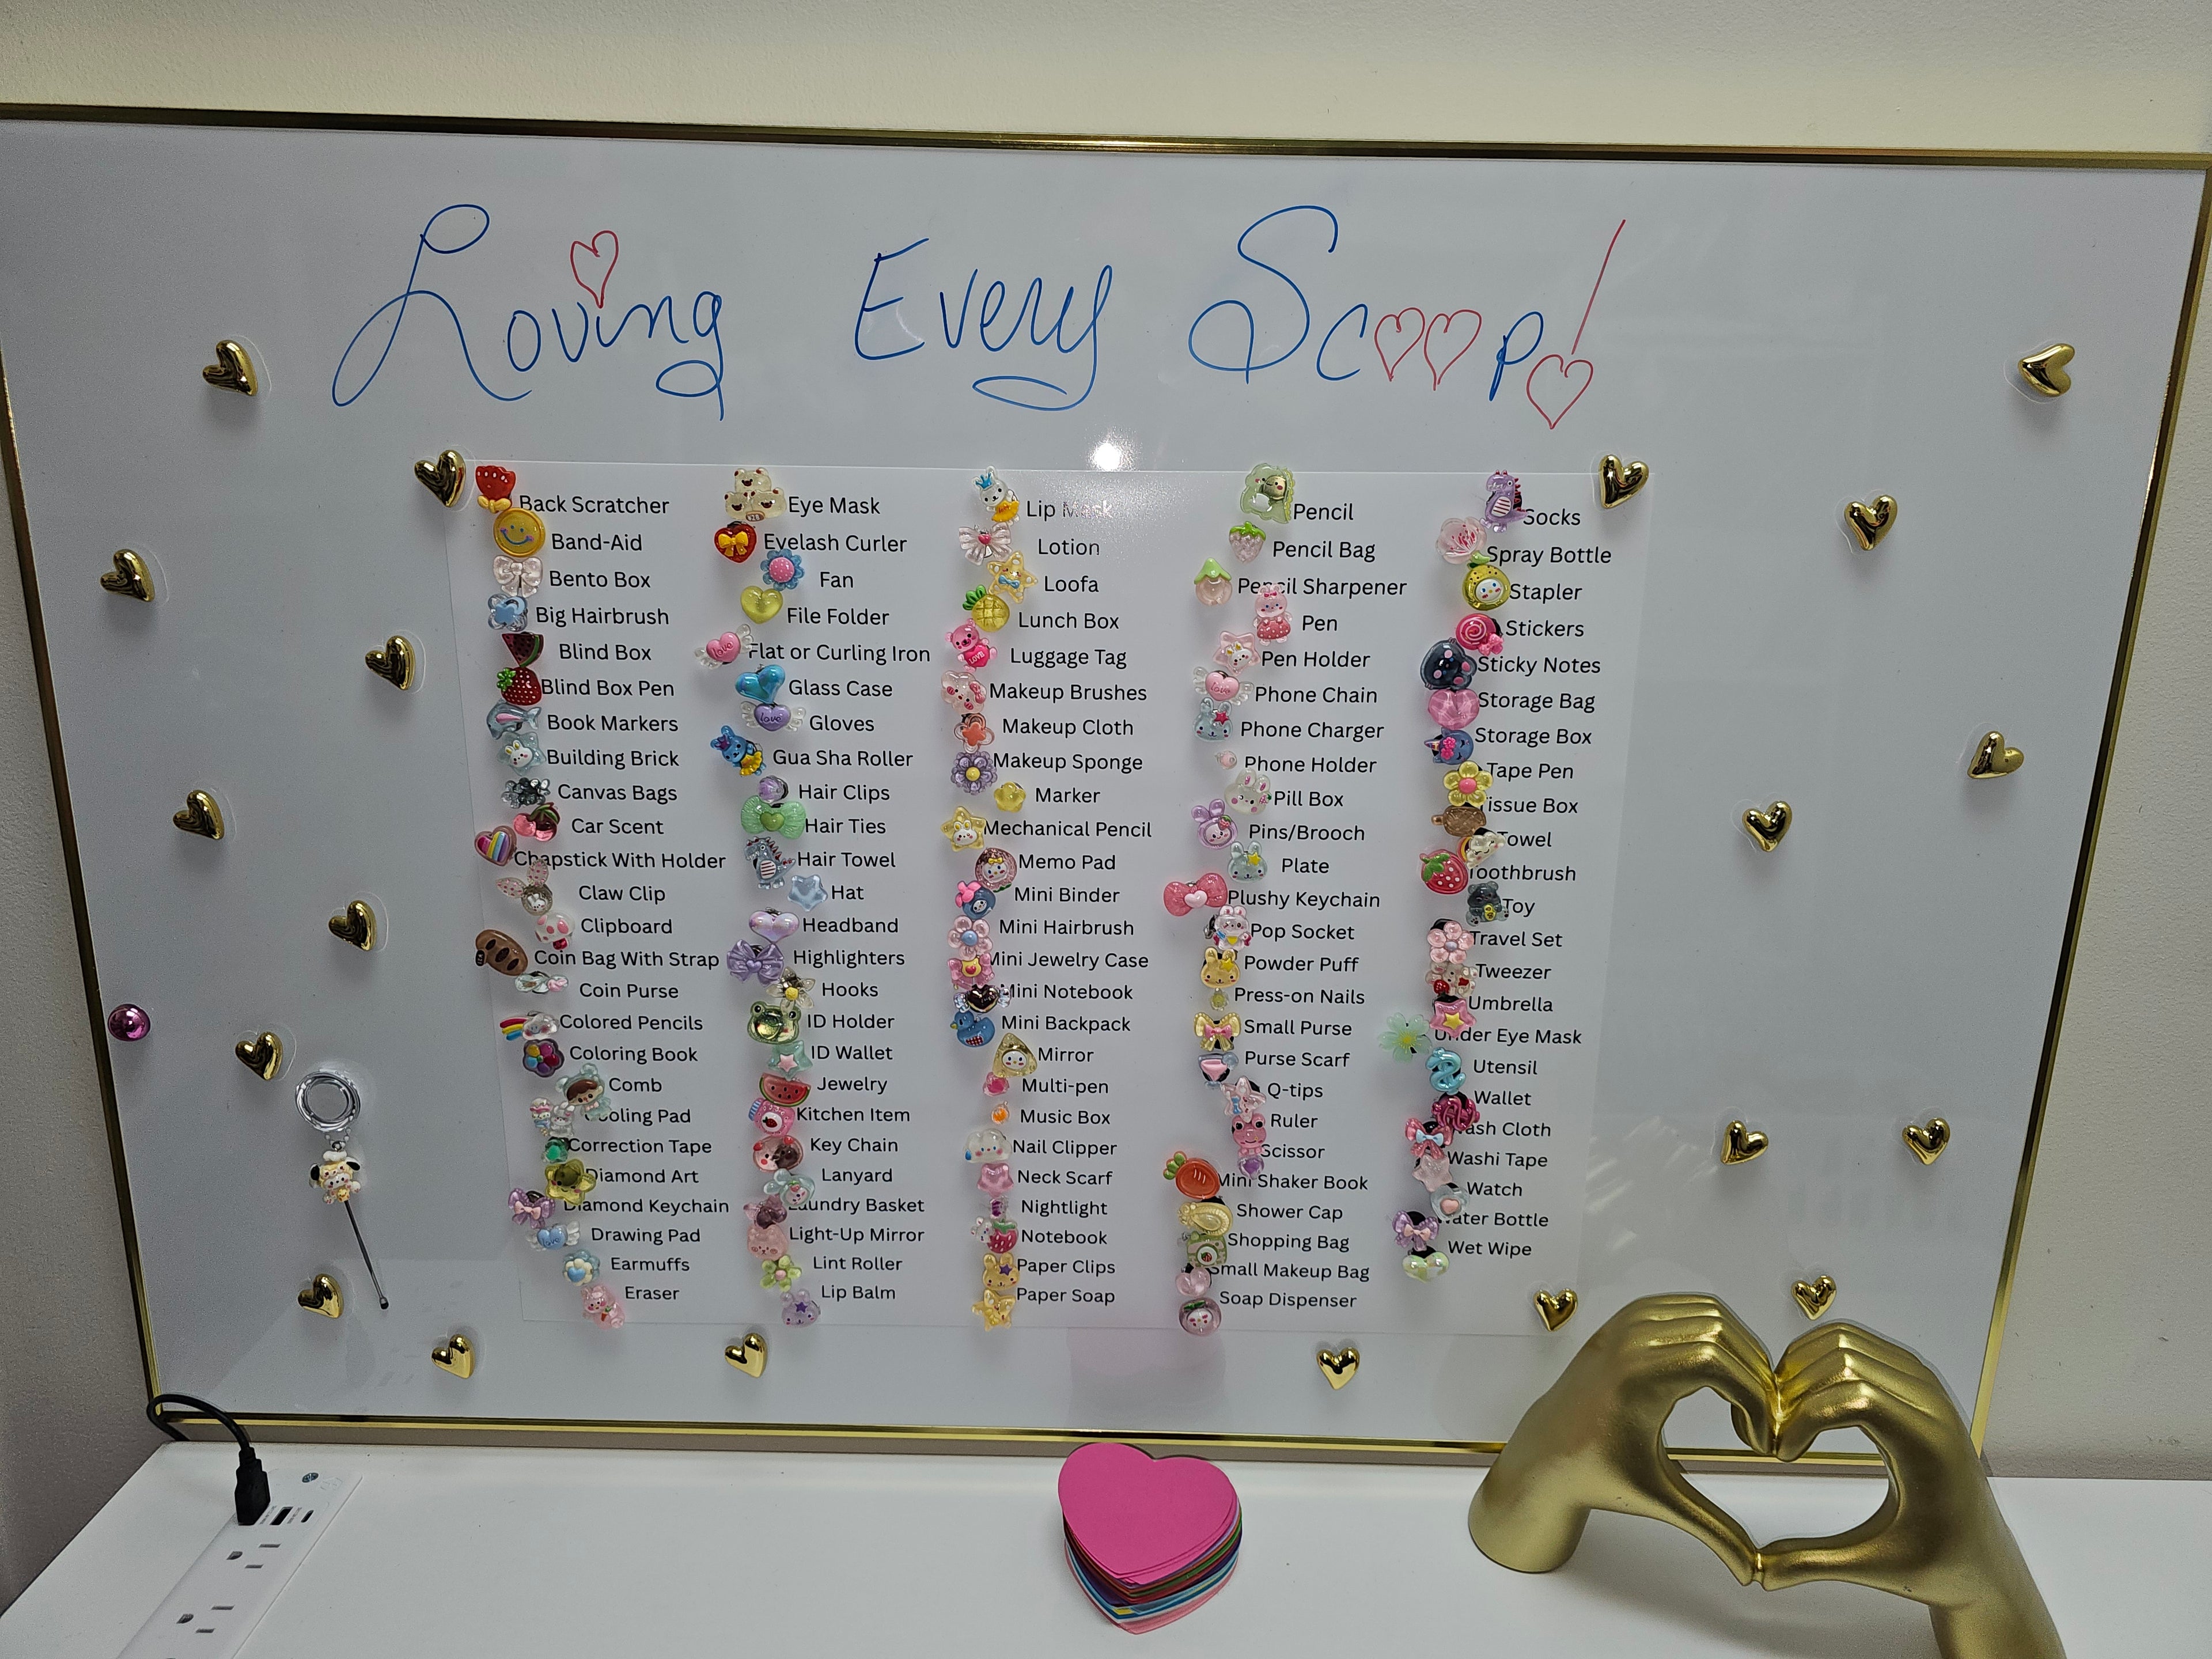 Loving Every Scoop!
Back Scratcher
Band-Aid
Bento Box
Big Hairbrush
Blind Box
Blind Box Pen
Book Markers
Building Brick
Canvas Bags
Car Scent
Chapstick With Holder
Claw Clip
Clipboard
Coin Bag With Strap
Coin Purse
Colored Pencils
Coloring Book
Comb
Cooling Pad
Correction Tape
Diamond Art
Diamond Keychain
Drawing Pad
Earmuffs
Eraser
Eye Mask
Eyelash Curler
Fan
File Folder
Flat or Curling Iron
Glass Case
Gloves
Gua Sha Roller
Hair Clips
Hair Ties
Hair Towel
Hat
Headband
Highlighters
Hooks
ID Holder
ID Wallet
Jewelry
Kitchen Item
Key Chain
Lanyard
Laundry Basket
Light-Up Mirror
Lint Roller
Lip Balm
Lip Mask
Lotion
Loofa
Lunch Box
Luggage Tag
Makeup Brushes
Makeup Cloth
Makeup Sponge
Marker
Mechanical Pencil
Memo Pad
Mini Binder
Mini Hairbrush
Mini Jewelry Case
Mini Notebook
Mini Backpack
Mirror
Multi-pen
Music Box
Nail Clipper
Neck Scarf
Nightlight
Notebook
Paper Clips
Paper Soap
Pencil
Pencil Bag
Pencil Sharpener
Pen
Pen Holder
Phone Chain
Phone Charger
Phone Holder
Pill Box
Pins/Brooch
Plate
Plushy Keychain
Pop Socket
Powder Puff
Press-on Nails
Small Purse
Purse Scarf
Q-tips
Ruler
Scissor
Mini Shaker Book
Shower Cap
Shopping Bag
Small Makeup Bag
Soap Dispenser
Socks
Spray Bottle
Stapler
Stickers
Sticky Notes
Storage Bag
Storage Box
Tape Pen
Tissue Box
Towel
Toothbrush
Toy
Travel Set
Tweezer
Umbrella
Under Eye Mask
Utensil
Wallet
Wash Cloth
Washi Tape
Watch
Water Bottle
Wet Wipe